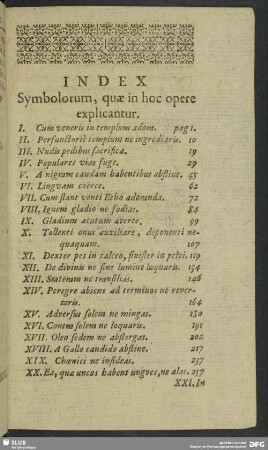 INDEX
Symbolorum, quæ in hoc opere
explicantur.
I. Cum veneris in templum adora. pag 1.
II. Perfunctoriè templum ne ingrediaris. 10
III. Nudis pedibus sacrifica. 19
IV. Populares vias fuge. 29
V. A nigram caudam habentibus abstine. 45
VI. Linguam coërce. 62
VII. Cum flant venti Echo adoranda. 72
VIII. Ignem gladio ne fodias. 84
IX. Gladium acutum averte. 99
X. Tollenti onus auxiliare, deponenti ne-
quaquam. 107
XI. Dexter pes in calceo, sinister in pelvi. 119
XII. De divinis ne sine lumine loquaris. 134
XIII. Stateram ne transilias. 146
XIV. Peregre abiens ad terminos ne rever-
teris. 164
XV. Adversus solem ne mingas. 180
XVI. Contra solem ne loquaris. 191
XVII. Oleo sedem ne abstergas. 202
XVIII. A Gallo candido abstine. 217
XIX. Chœnici ne insideas. 237
XX. Ea, quæ uncos habent ungves, ne alas. 257
XXI. In
SLUB